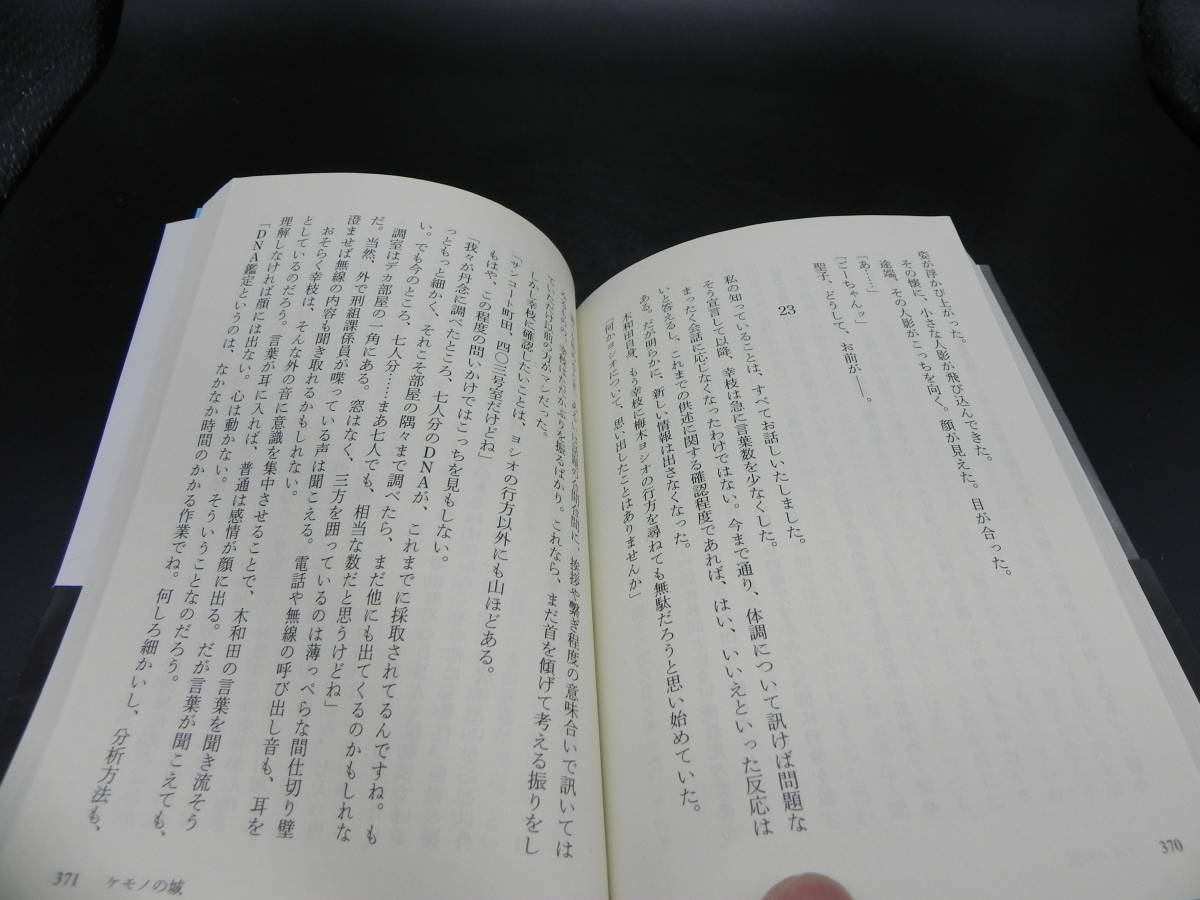 姿が浮かび上がった。
その懐に、小さな人影が飛び込んできた。
途端、その人影がこっちを向く。顔が見えた。目が合った。
「あ……」
「ごーちゃんッ」
聖子、どうして、お前が――。
23
私の知っていることは、すべてお話しいたしました。
そう宣言して以降、幸枝は急に言葉数を少なくした。
まったく会話に応じなくなったわけではない。今まで通り、体調について訊けば問題な
いと答えるし、これまでの供述に関する確認程度であれば、はい、いいえといった反応は
ある。だが明らかに、新しい情報は出さなくなった。
木和田自身、もう幸枝に梅木ヨシオの行方を尋ねても無駄だろうと思い始めていた。
「何かヨシオについて、思い出したことはありませんか」
370
挨拶や繋ぎ程度の意味合いで訊いては
かぶりを振るばかり。これなら、まだ首を傾げて考える振りをし
ていただけ以前の方がマシだった。
しかし幸枝に確認したいことは、ヨシオの行方以外にも山ほどある。
「サンコート町田、四〇三号室だけどね」
もはや、この程度の問いかけではこっちを見もしない。
「我々が丹念に調べたところ、七人分のDNAが、これまでに採取されてるんですね。も
っともっと細かく、それこそ部屋の隅々まで調べたら、まだ他にも出てくるのかもしれな
い。でも今のところ、七人分……まあ七人でも、相当な数だと思うけどね」
調室はデカ部屋の一角にある。窓はなく、三方を囲っているのは薄っぺらな間仕切り壁
だ。当然、外で刑組課係員が喋っている声は聞こえる。電話や無線の呼び出し音も、耳を
澄ませば無線の内容も聞き取れるかもしれない。
おそらく幸枝は、そんな外の音に意識を集中させることで、木和田の言葉を聞き流そう
としているのだろう。言葉が耳に入れば、普通は感情が顔に出る。だが言葉が聞こえても、
理解しなければ顔には出ない。心は動かない。そういうことなのだろう。
「DNA鑑定というのは、なかなか時間のかかる作業でね。何しろ細かいし、分析方法も、
371 ケモノの城